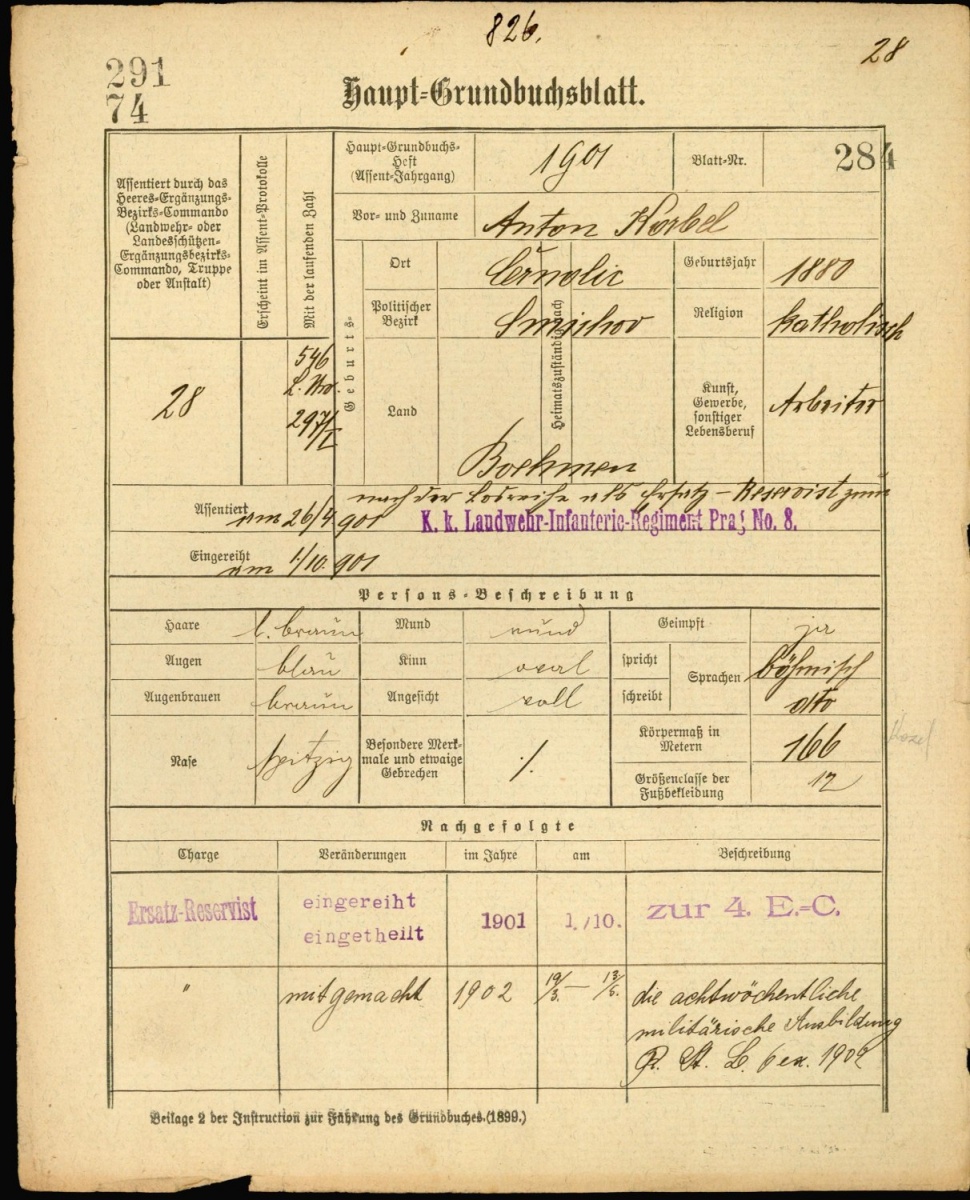 826.
28
291
74
Haupt-Grundbuchsblatt.
Assentiert durch das
Heeres-Ergänzungs-
Bezirks-Commando
(Landwehr- oder
Landesschützen-
Ergänzungsbezirks-
Commando, Truppe
oder Anstalt)
Erscheint im Assent-Protokolle
Mit der laufenden Zahl
Haupt-Grundbuchs-
Heft
(Assent-Jahrgang)
1901
Blatt-Nr.
284
Vor- und Zuname
Anton Korbel
Geburts-
Ort
Černolic
Geburtsjahr
1880
Politischer
Bezirk
Smichov
Heimatszuständig nach
Religion
katholisch
28
546
L. Nro.
297/I
Land
Boehmen
Kunst,
Gewerbe,
sonstiger
Lebensberuf
Arbeiter
Assentiert
am 26/4 901
nach der Losreihe als Ersatz-Reservist zum
K. k. Landwehr-Infanterie-Regiment Prag No. 8.
Eingereiht
am 1/10. 901
Persons-Beschreibung
Haare
l. braun
Mund
rund
Geimpft
ja
Augen
blau
Kinn
oval
spricht
Sprachen
böhmisch
Augenbrauen
braun
Angesicht
voll
schreibt
dto
Nase
spitzig
Besondere Merk-
male und etwaige
Gebrechen
./.
Körpermaß in
Metern
166
Größenclasse der
Fußbekleidung
12
Nachgefolgte
Charge
Veränderungen
im Jahre
am
Beschreibung
Ersatz-Reservist
eingereiht
eingetheilt
1901
1./10.
zur 4. E.-C.
"
mitgemacht
1902
19/3. — 13/5.
die achtwöchentliche
militärische Ausbildung
Beilage 2 der Instruction zur Führung des Grundbuches.(1899.)